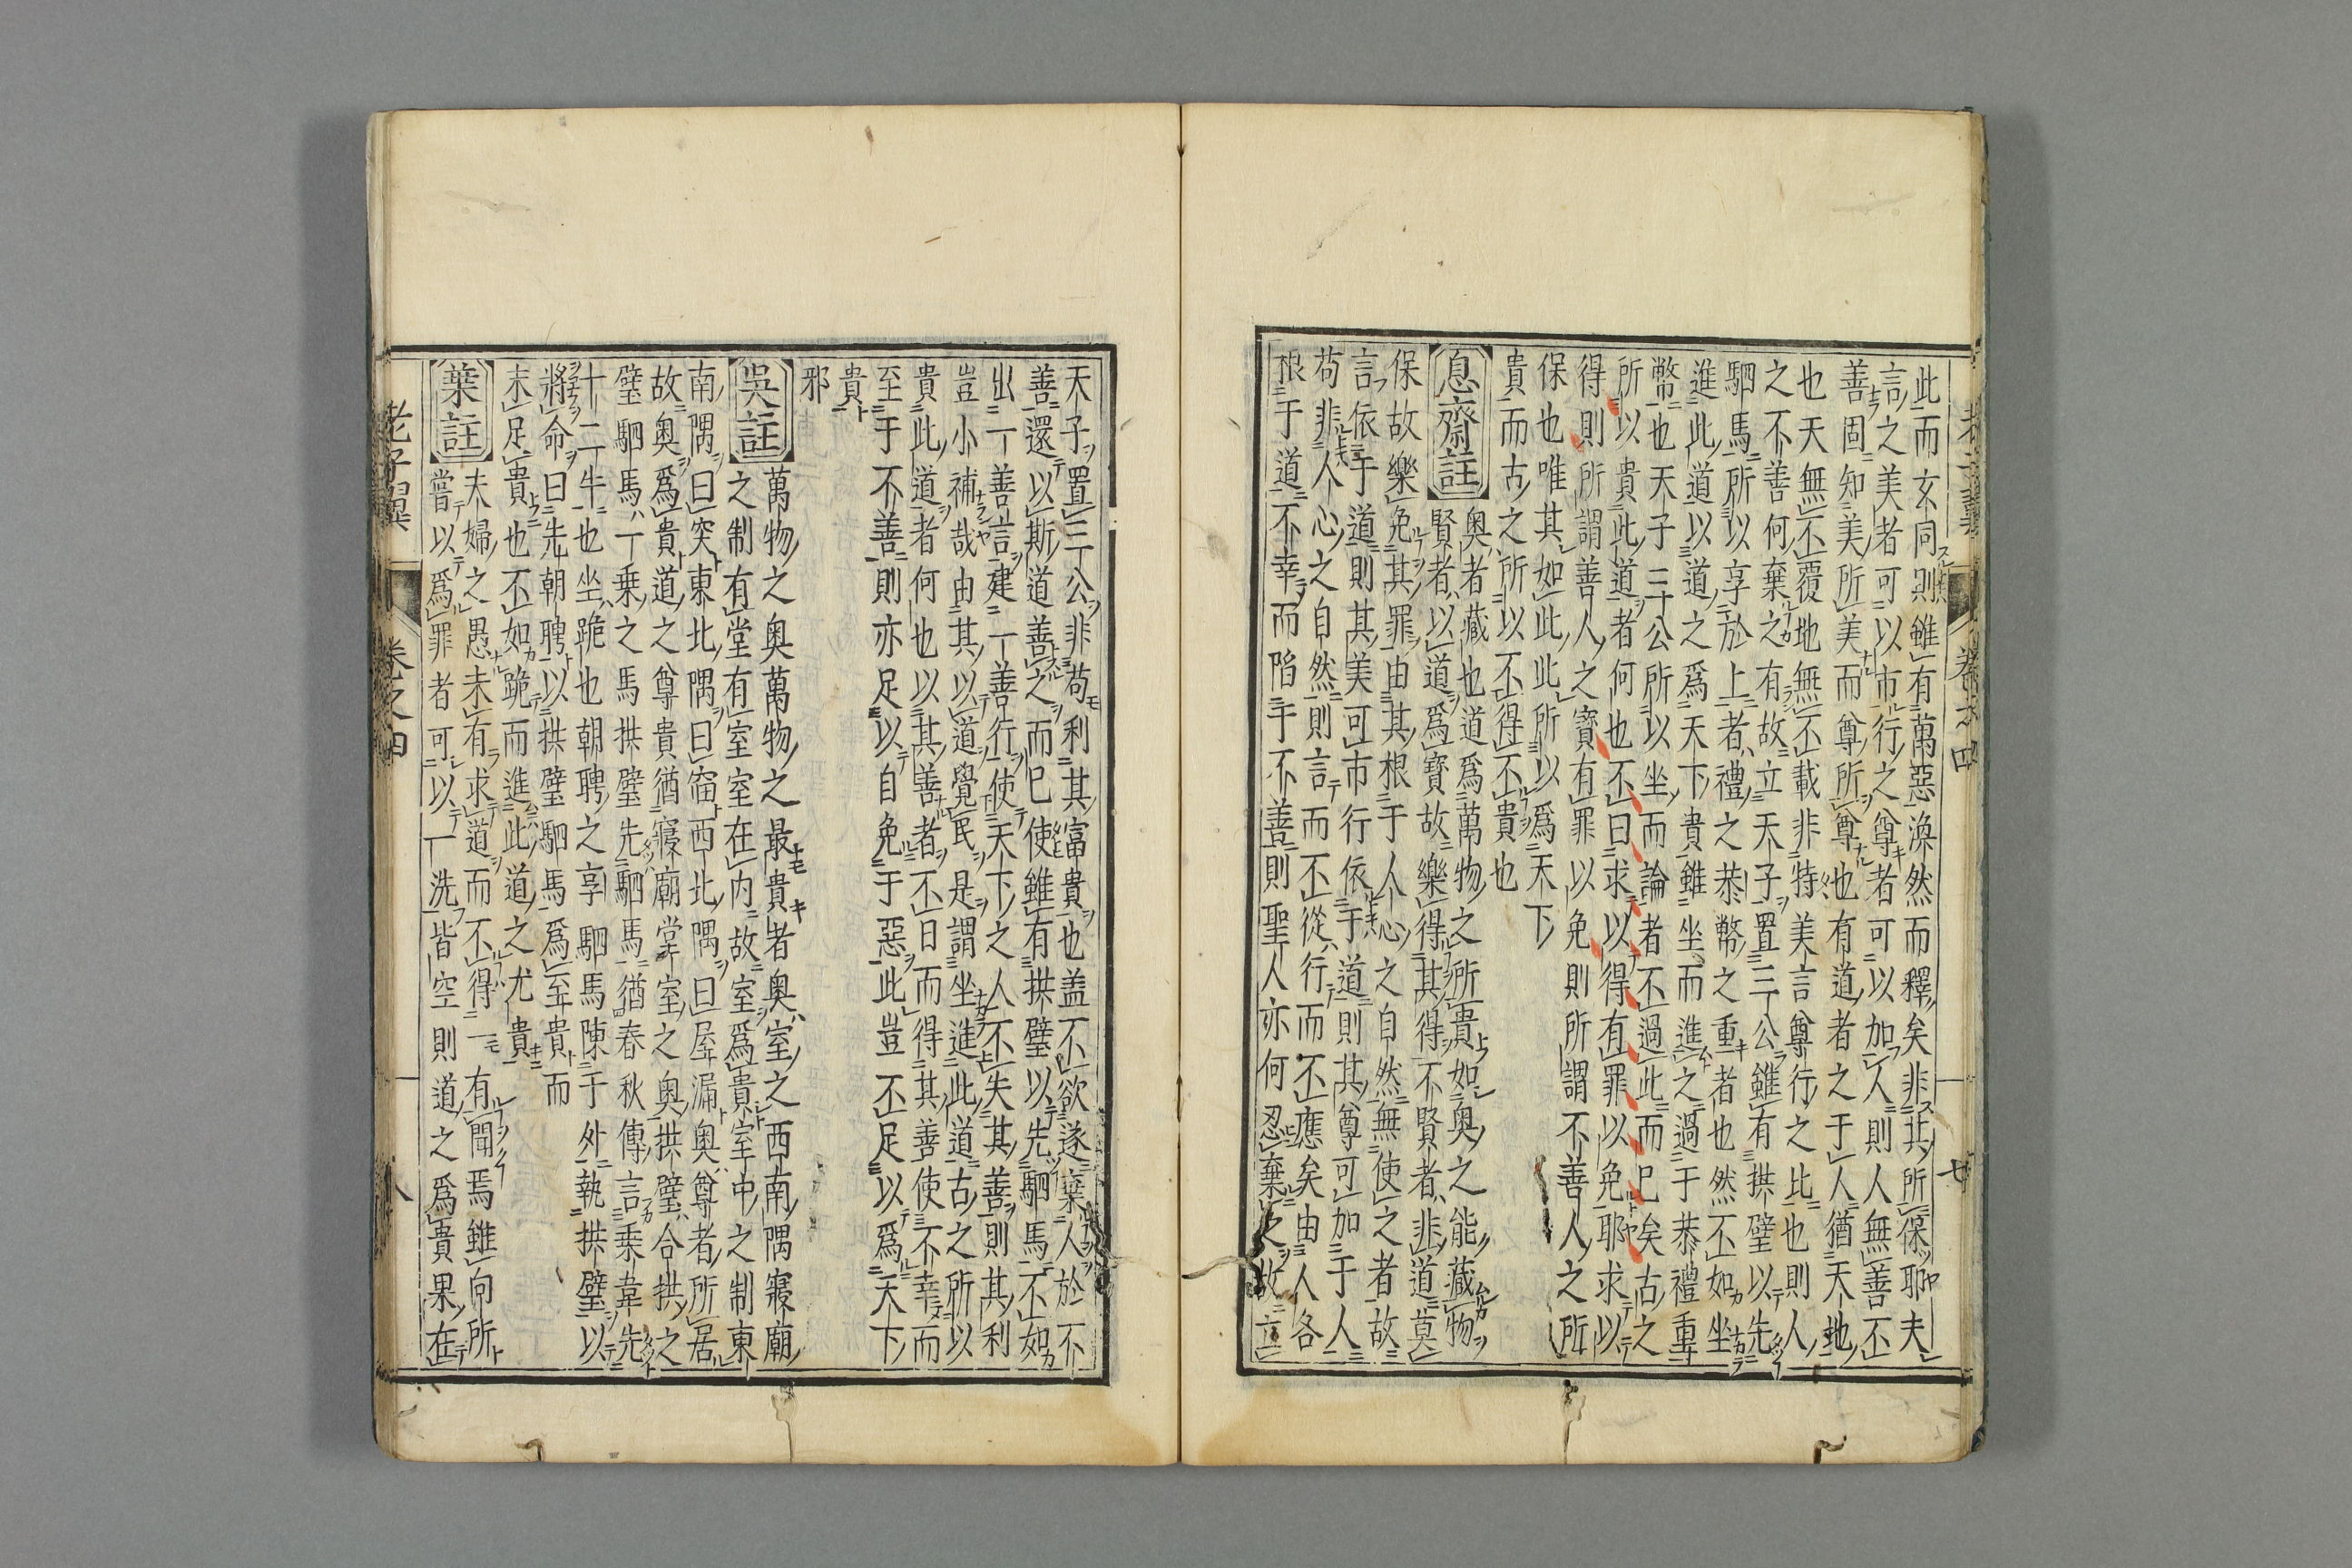 此而玄同則雖有萬惡渙然而釋矣非其所保耶夫
言之美者可以市行之尊者可以加人則人無善不
善固知美所美而尊所尊也有道者之于人猶天地
也天無不覆地無不載非特美言尊行之比也則人
之不善何棄之有故立天子置三公雖有拱璧以先
駟馬所以享於上者禮之恭幣之重者也然不如坐
進此道以道之爲天下貴雖坐而進之過于恭禮重
幣也天子三公所以坐而論者不過此而已矣古之
所以貴此道者何也不曰求以得有罪以免耶求以
得則所謂善人之寶有罪以免則所謂不善人之所
保也唯其如此此所以爲天下
貴而古之所以不得不貴也
息齋註
奥者藏也道爲萬物之所貴如奥之能藏物
賢者以道爲寶故樂得其得不賢者非道莫
保故樂免其罪由其根于人心之自然無使之者故
言依于道則其美可市行依于道則其尊可加于人
苟非人心之自然則言而不從行而不應矣由人各
根于道不幸而陷于不善則聖人亦何忍棄之故立
天子置三公非苟利其富貴也盖不欲遂棄人於不
善還以斯道善之而已使雖有拱璧以先駟馬不如
出一善言建一善行使天下之人不失其善則其利
豈小補哉由其以道覺民是謂坐進此道古之所以
貴此道者何也以其善者不日而得其善使不幸而
至于不善則亦足以自免于惡此豈不足以爲天下
貴
邪
吳註
萬物之奥萬物之最貴者奥室之西南隅寢廟
之制有堂有室室在内故室爲貴室中之制東
南隅曰突東北隅曰窗西北隅曰屋漏奥尊者所居
故奥爲貴道之尊貴猶寢廟堂室之奥拱璧合拱之
璧駟馬一乗之馬拱璧先駟馬猶春秋傳言乗韋先
十二牛也坐跪也朝聘之享駟馬陳于外執拱璧以
將命曰先朝聘以拱璧駟馬爲至貴而
未足貴也不如跪而進此道之尤貴
葉註
夫婦之愚未有求道而不得一有聞焉雖向所
嘗以爲罪者可以一洗皆空則道之爲貴果在
老子翼
卷之四